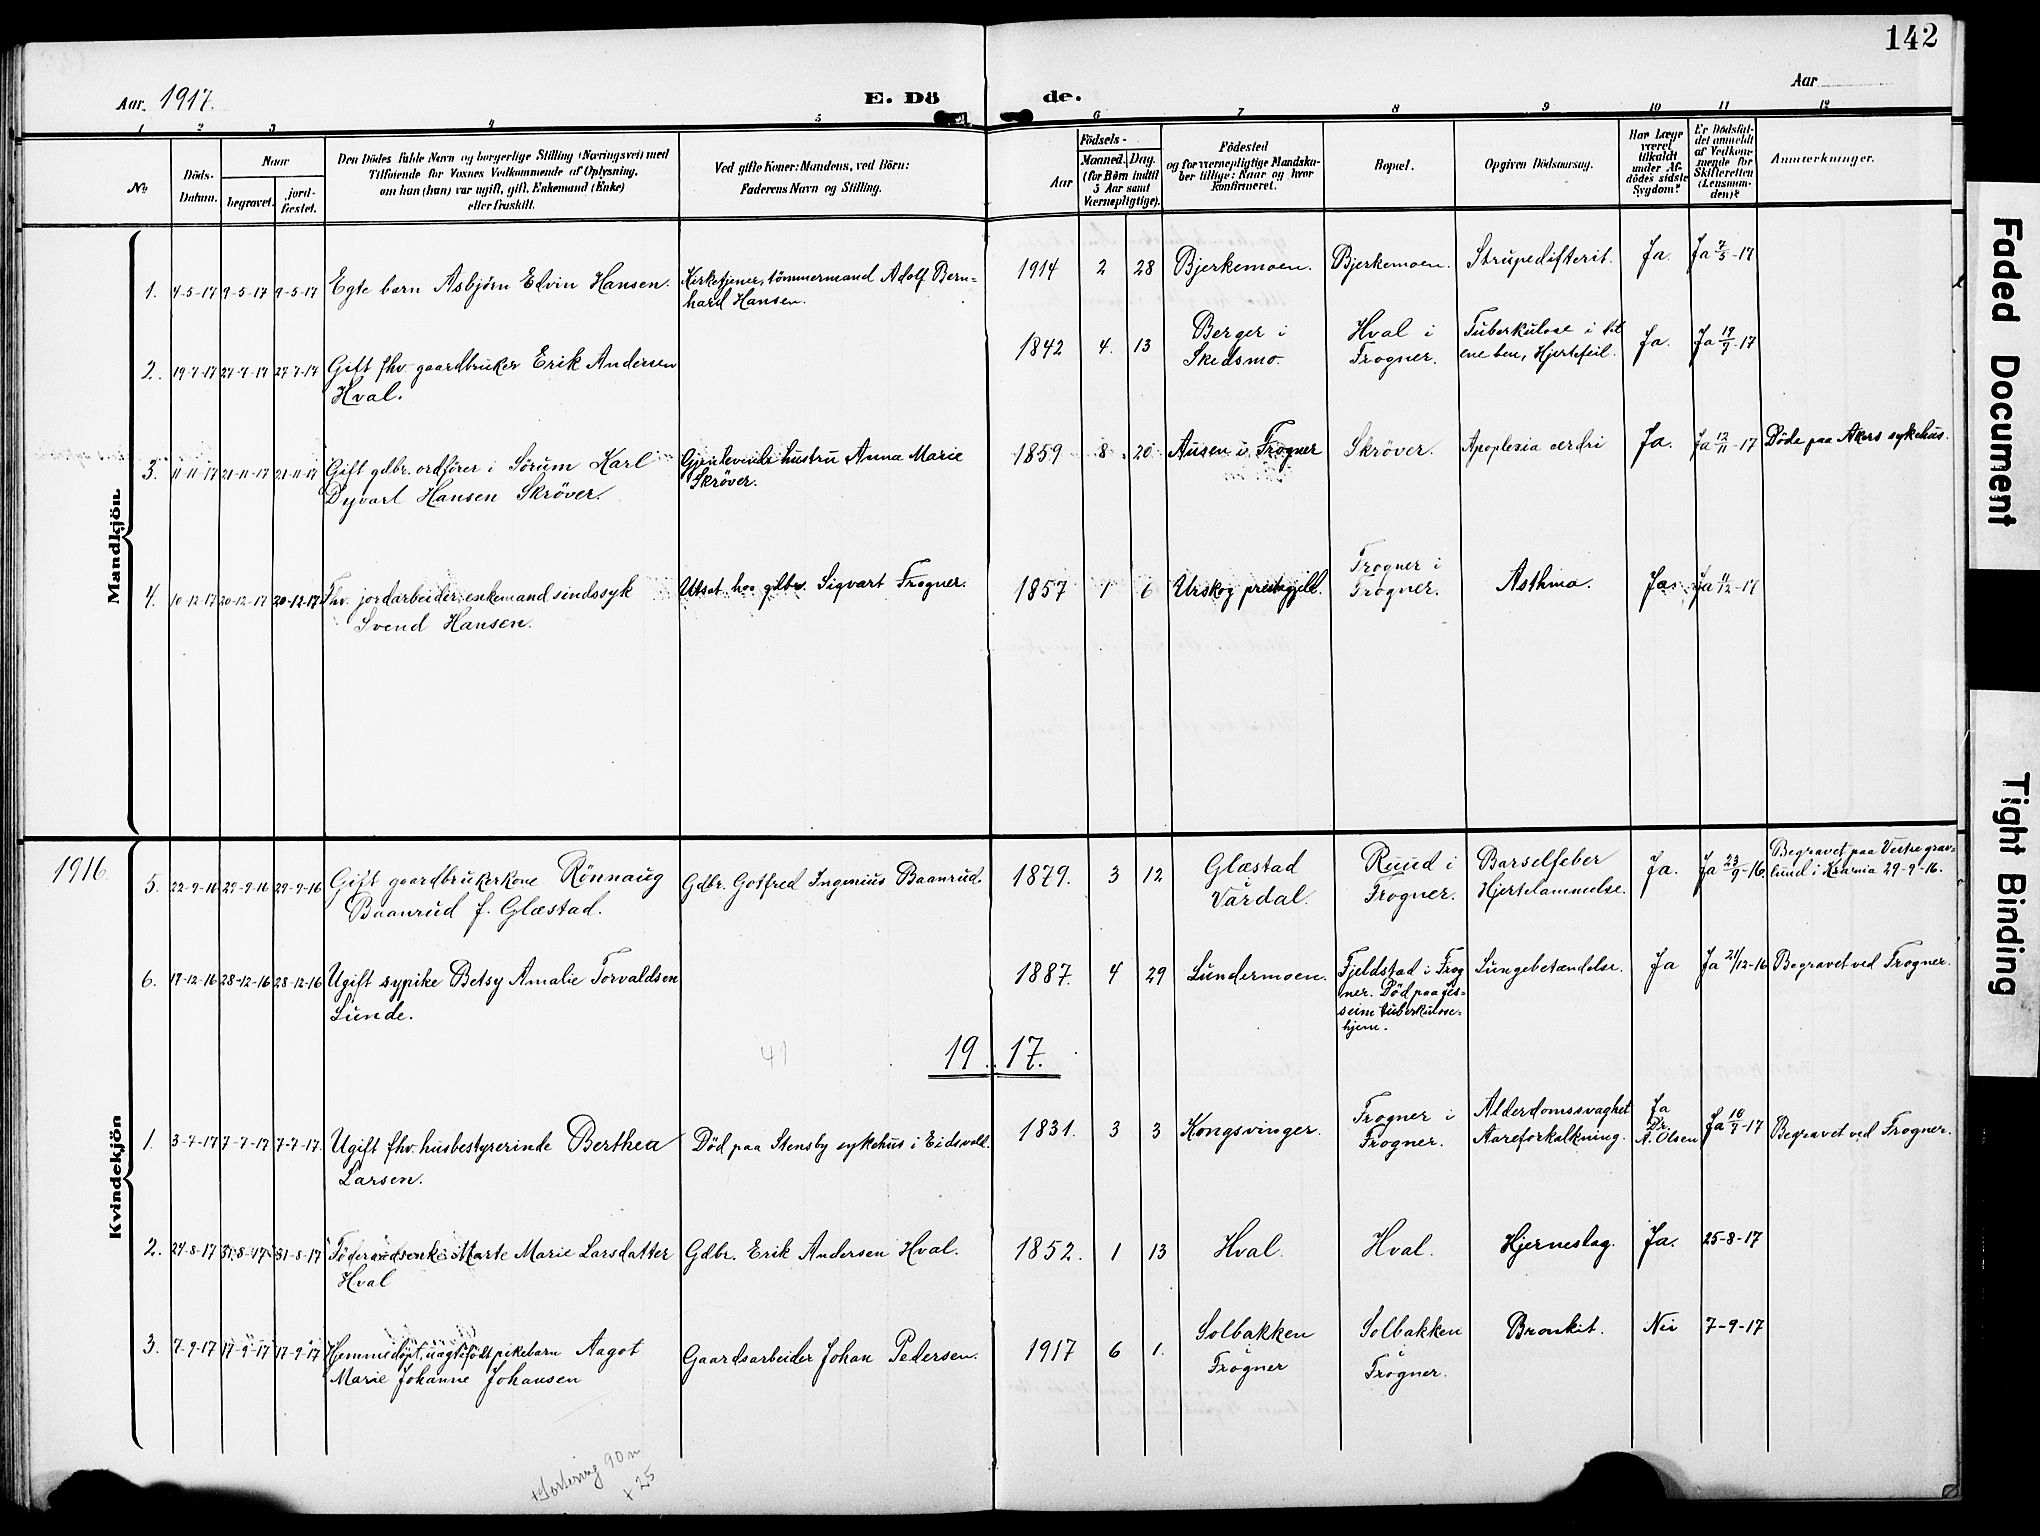 142
Aar. 1917.
E. Dö de.
Aar
1 2 3 4 5 6 7 8 9 10 11 12
No
Döds-
Datum.
Naar
begravet.
jord-
fæstet.
Den Dödes fulde Navn og borgerlige Stilling (Næringsvei) med
Tilföiende for Voxnes Vedkommende af Oplysning,
om han (hun) var ugift, gift, Enkemand (Enke)
eller fraskilt.
Ved gifte Koner: Mandens, ved Börn:
Faderens Navn og Stilling.
Födsels-
Aar
Maaned. Dag.
(for Børn indtil
5 Aar samt
Værnepligtige).
Födested
og for værnepligtige Mandska-
ber tillige: Naar og hvor
konfirmeret.
Bopæl.
Opgiven Dödsaarsag.
Har Læge
været
tilkaldt
under Af-
dödes sidste
Sygdom?
Er Dödsfal-
det anmeldt
af Vedkom-
mende for
Skifteretten
(Lensman-
den)?
Anmærkninger.
Mandkjön
1. 4-5-17 9-5-17 9-5-17 Egte barn Asbjörn Edvin Hansen. Kirketjener, tömmermand Adolf Bern-
hard Hansen. 1914 2 28 Bjerkemoen. Bjerkemoen. Strupedifterit. Ja. Ja 7/5-17
2. 19-7-17 27-7-17 27-7-17 Gift fhv. gaardbruker Erik Andersen
Hval. 1842 4. 13 Berger i
Skedsmo. Hval i
Frogner. Tuberkulose i
ene ben, Hjertefeil. Ja. Ja 19/7-17
3. 11-11-17 21-11-17 21-11-17 Gift gdbr. ordförer i Sörum Karl
Dyvart Hansen Skröver. Gjenlevende hustru Anna Marie
Skröver. 1859 8 20 Ausen i Frogner Skröver. Apoplexia cerdri Ja. Ja 12/11-17 Döde paa Akers sykehus.
4. 10-12-17 20-12-17 20-12-17 Fhv. jordarbeider, enkemand sindssyk
Svend Hansen. Utsat hos gdbr. Sigvart Frogner. 1857 1 6 Urskog prestegjeld. Frogner i
Frogner. Asthma. Ja. Ja 11/12-17
Kvindekjön
1916.
5. 22-9-16 29-9-16 29-9-16 Gift gaardbrukerkone Rönnaug
Baanrud f. Glæstad. Gdbr. Gotfred Ingenius Baanrud. 1879. 3 12 Glæstad
Vardal. Ruud i
Frogner. Barselfeber
Hjertelammelse. Ja. Ja 23/9-16 Begravet paa Vestre grav-
lund i Kr.ania 29-9-16.
6. 17-12-16 28-12-16 28-12-16 Ugift sypike Betsy Amalie Torvaldsen
Lunde. 1887. 4 29 Lundermoen. Fjeldstad i Frog
ner. Död paa Jes-
seim tuberkulose-
hjem. Lungebetændelse. Ja Ja 21/12-16 Begravet ved Frogner.
41
1917.
1. 3-7-17 7-7-17 7-7-17. Ugift fhv. husbestyrerinde Berthea
Larsen. Död paa Stensby sykehus i Eidsvold. 1831. 3 3 Kongsvinger. Frogner i
Frogner. Alderdomssvaghet
Aareforkalkning. Ja
Dr.
A. Olsen Ja 10/7-17 Begravet ved Frogner.
2. 24-8-17 31-8-17 31-8-17 Föderaadsenke Marte Marie Larsdatter
Hval Gdbr. Erik Andersen Hval. 1852. 1 13 Hval. Hval. Hjerneslag. Ja. 25-8-17
3. 7-9-17 17-9-17 17-9-17 Hjemmedöpt, uægtefödt pikebarn Aagot
Marie Johanne Johansen Gaardsarbeider Johan Pedersen. 1917 6 1. Solbakken
Frogner Solbakken
i
Frogner. Bronkit. Nei 7-9-17
90 m
+ 25
Faded Document
Tight Binding